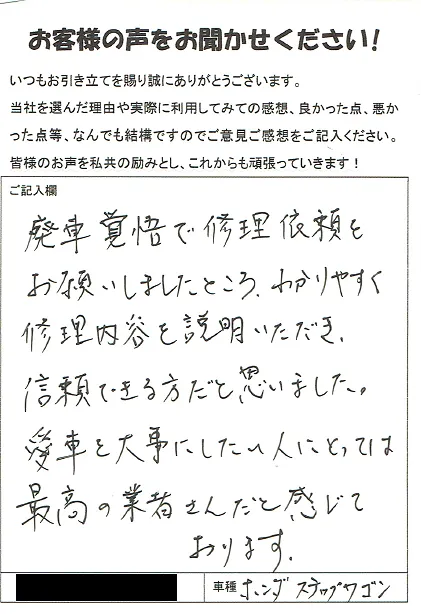 お客様の声をお聞かせください!
いつもお引き立てを賜り誠にありがとうございます。
当社を選んだ理由や実際に利用してみての感想、良かった点、悪か
った点等、なんでも結構ですのでご意見ご感想をご記入ください。
皆様のお声を私共の励みとし、これからも頑張っていきます!
ご記入欄
廃車覚悟で修理依頼を
お願いしましたところ、わかりやすく
修理内容を説明いただき、
信頼できる方だと思いました。
愛車を大事にしたい人にとっては
最高の業者さんだと感じて
おります。
車種 ホンダ ステップワゴン